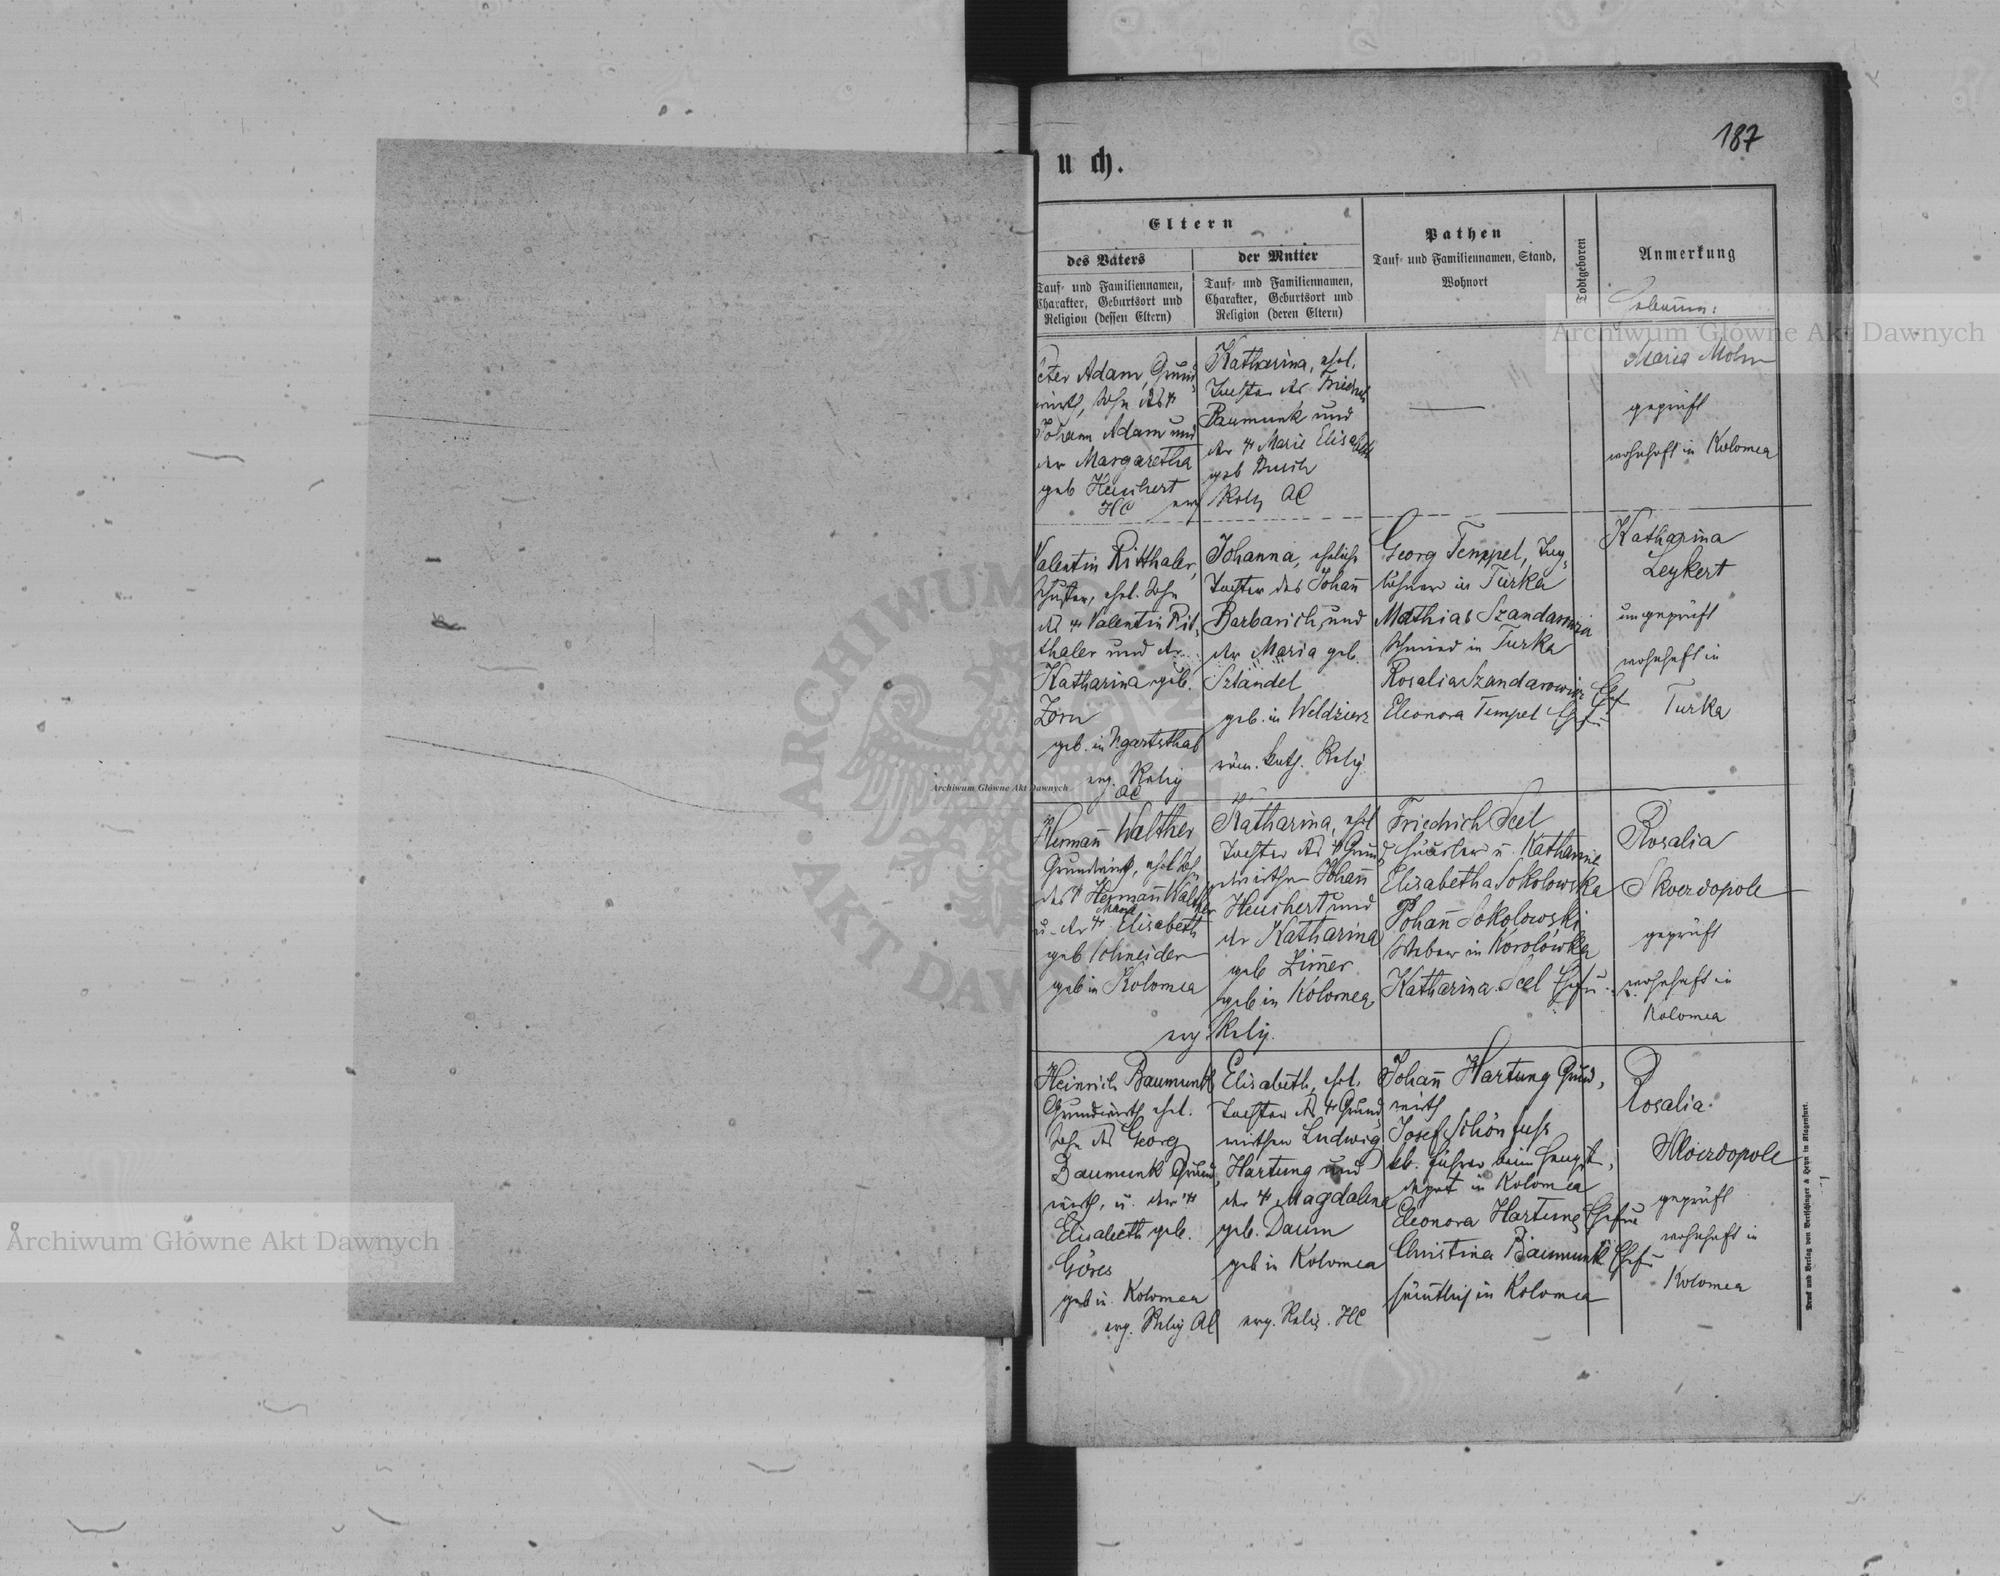 187
uch.
Eltern
des Vaters
Tauf- und Familiennamen,
Charakter, Geburtsort und
Religion (dessen Eltern)
der Mutter
Tauf- und Familiennamen,
Charakter, Geburtsort und
Religion (deren Eltern)
Pathen
Tauf- und Familiennamen, Stand,
Wohnort
Todtgeboren
Anmerkung
Hebamme:
Archiwum Główne Akt Dawnych
eter Adam, Grund-
wirth, Sohn des †
Johann Adam und
der Margaretha
geb Heuchert
HC evg
Katharina, ehel.
Tochter des Friedrich
Baumunk und
der † Marie Elisabeth
geb Busch
Relig AC
Maria Mohr
geprüft
wohnhaft in Kolomea
Valentin Ritthaler,
Schuster, ehel. Sohn
des † Valentin Rit-
thaler und der
Katharina geb.
Zorn
geb. in Ugartsthal
evg. Relig
AC
Johanna, eheliche
Tochter des Johann
Barbarich, und
der Maria geb.
Sztandel
geb. in Weldzierz
röm. kath. Relig.
Georg Tempel, Tag-
löhner in Turka
Mathias Szandarowicz
Schmied in Turka
Rosalia Szandarowicz Ehf
Eleonora Tempel Ehfr
Katharina
Leykert
ungeprüft
wohnhaft in
Turka
Hermann Walther
Grundwirth, ehel Sohn
des † Hermann Walther
u. der † Maria Elisabeth
geb Schneider
geb in Kolomea
evg
Katharina, ehel
Tochter des † Grund-
wirthen Johann
Heuchert und
der Katharina
geb Zimer
geb in Kolomea
Relig.
Friedrich Seel
Häusler u. Katharina
Elisabetha Sokolowska
Johann Sokolowski
Weber in Korolówka
Katharina Seel Ehefr.
Rosalia
Skwerdopole
geprüft
wohnhaft in
Kolomea
Heinrich Baumunk
Grundwirth ehel.
Sohn des Georg
Baumunk Grund-
wirth, u. der †
Elisabeth geb.
Göres
geb in Kolomea
evg. Relig AC
Elisabeth, ehel.
Tochter des † Grund-
wirthen Ludwig
Hartung und
der † Magdalena
geb. Daum
geb in Kolomea
evg. Relig. HC
Johann Hartung Grund-
wirth
Josef Schönfuss
Führer beim Hengst-
depot in Kolomea
Eleonora Hartung Ehefrau
Christina Baumunk Ehefr
sämtlich in Kolomea
Rosalia
Skwerdopole
geprüft
wohnhaft in
Kolomea
Druck und Verlag von Bertschinger & Heyn in Klagenfurt.
Archiwum Główne Akt Dawnych
Archiwum Główne Akt Dawnych
ARCHIWUM
AKT DAW